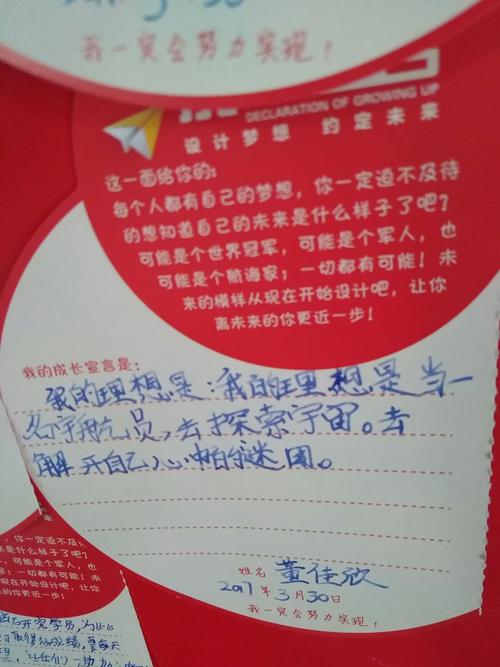 我一定会努力实现！
DECLARATION OF GROWING UP
设计梦想 约定未来
这一面给你的:
每个人都有自己的梦想，你一定迫不及待
的想知道自己的未来是什么样子了吧？
可能是个世界冠军，可能是个军人，也
可能是个航海家；一切都有可能！未
来的模样从现在开始设计吧，让你
离未来的你更近一步！
我的成长宣言是:
我的理想是:我的理想是当一
名宇航员,去探索宇宙。去
解开自己心中的谜团。
姓名 董佳欣
2017年3月30日
我一定会努力实现！
，你一定迫不及
什么样子了吧？
是个军人，也
都有可能！未
设计吧，让你
更近一步！